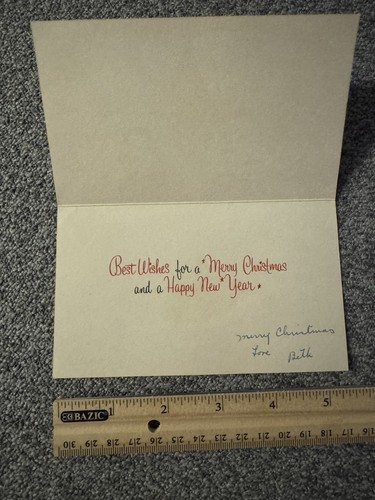 Best Wishes for a Merry Christmas
and a Happy New Year.
Merry Christmas
Love Beth
1 2 3 4 5
BAZIC
30 29 28 27 26 25 24 23 22 21 20 19 18 17 16